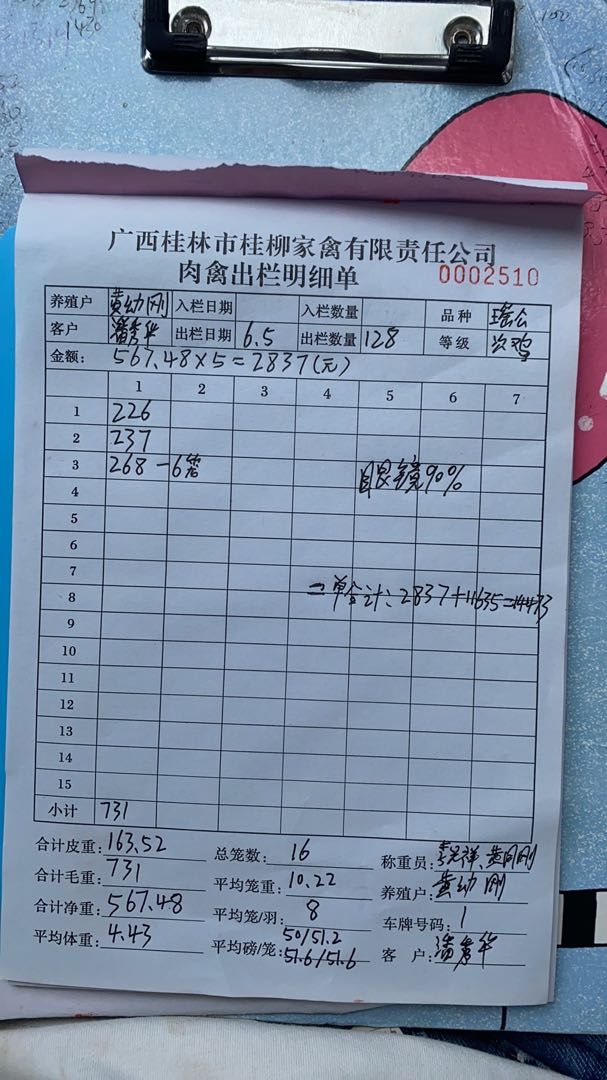 广西桂林市桂柳家禽有限责任公司
肉禽出栏明细单 0002510
养殖户 黄幼刚 入栏日期 入栏数量 品种 瑶公
客户 潘秀华 出栏日期 6.5 出栏数量 128 等级 次鸡
金额: 567.48×5=2837(元)
1 2 3 4 5 6 7
1 226
2 237
3 268-6笼 眼镜90%
4
5
6
7
8 二单合计:2837+11635=14473
9
10
11
12
13
14
15
小计 731
合计皮重: 163.52 总笼数: 16 称重员:
合计毛重: 731 平均笼重: 10.22 养殖户: 黄幼刚
合计净重: 567.48 平均笼/羽: 8 车牌号码: 1
平均体重: 4.43 平均磅/笼: 50/51.2 客 户: 潘秀华
51.6/51.6